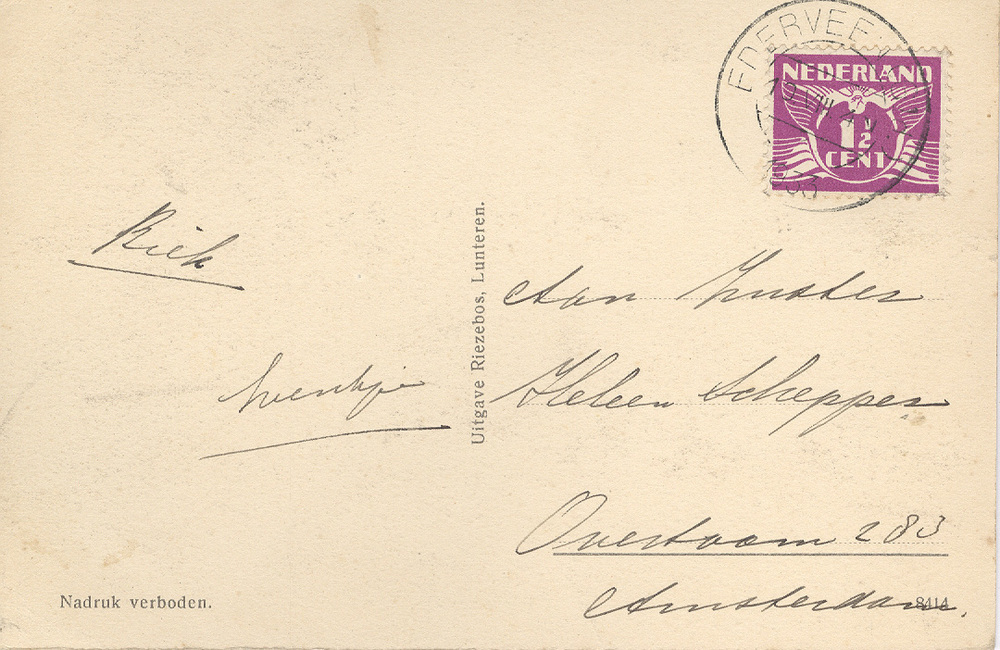 EDERVEEN
1933
NEDERLAND
1½
CENT
Riek
Wentje
Uitgave Riezebos, Lunteren.
Aan Zuster
Heleen Schepper
Overtoom 283
Amsterdam.
Nadruk verboden.
8414